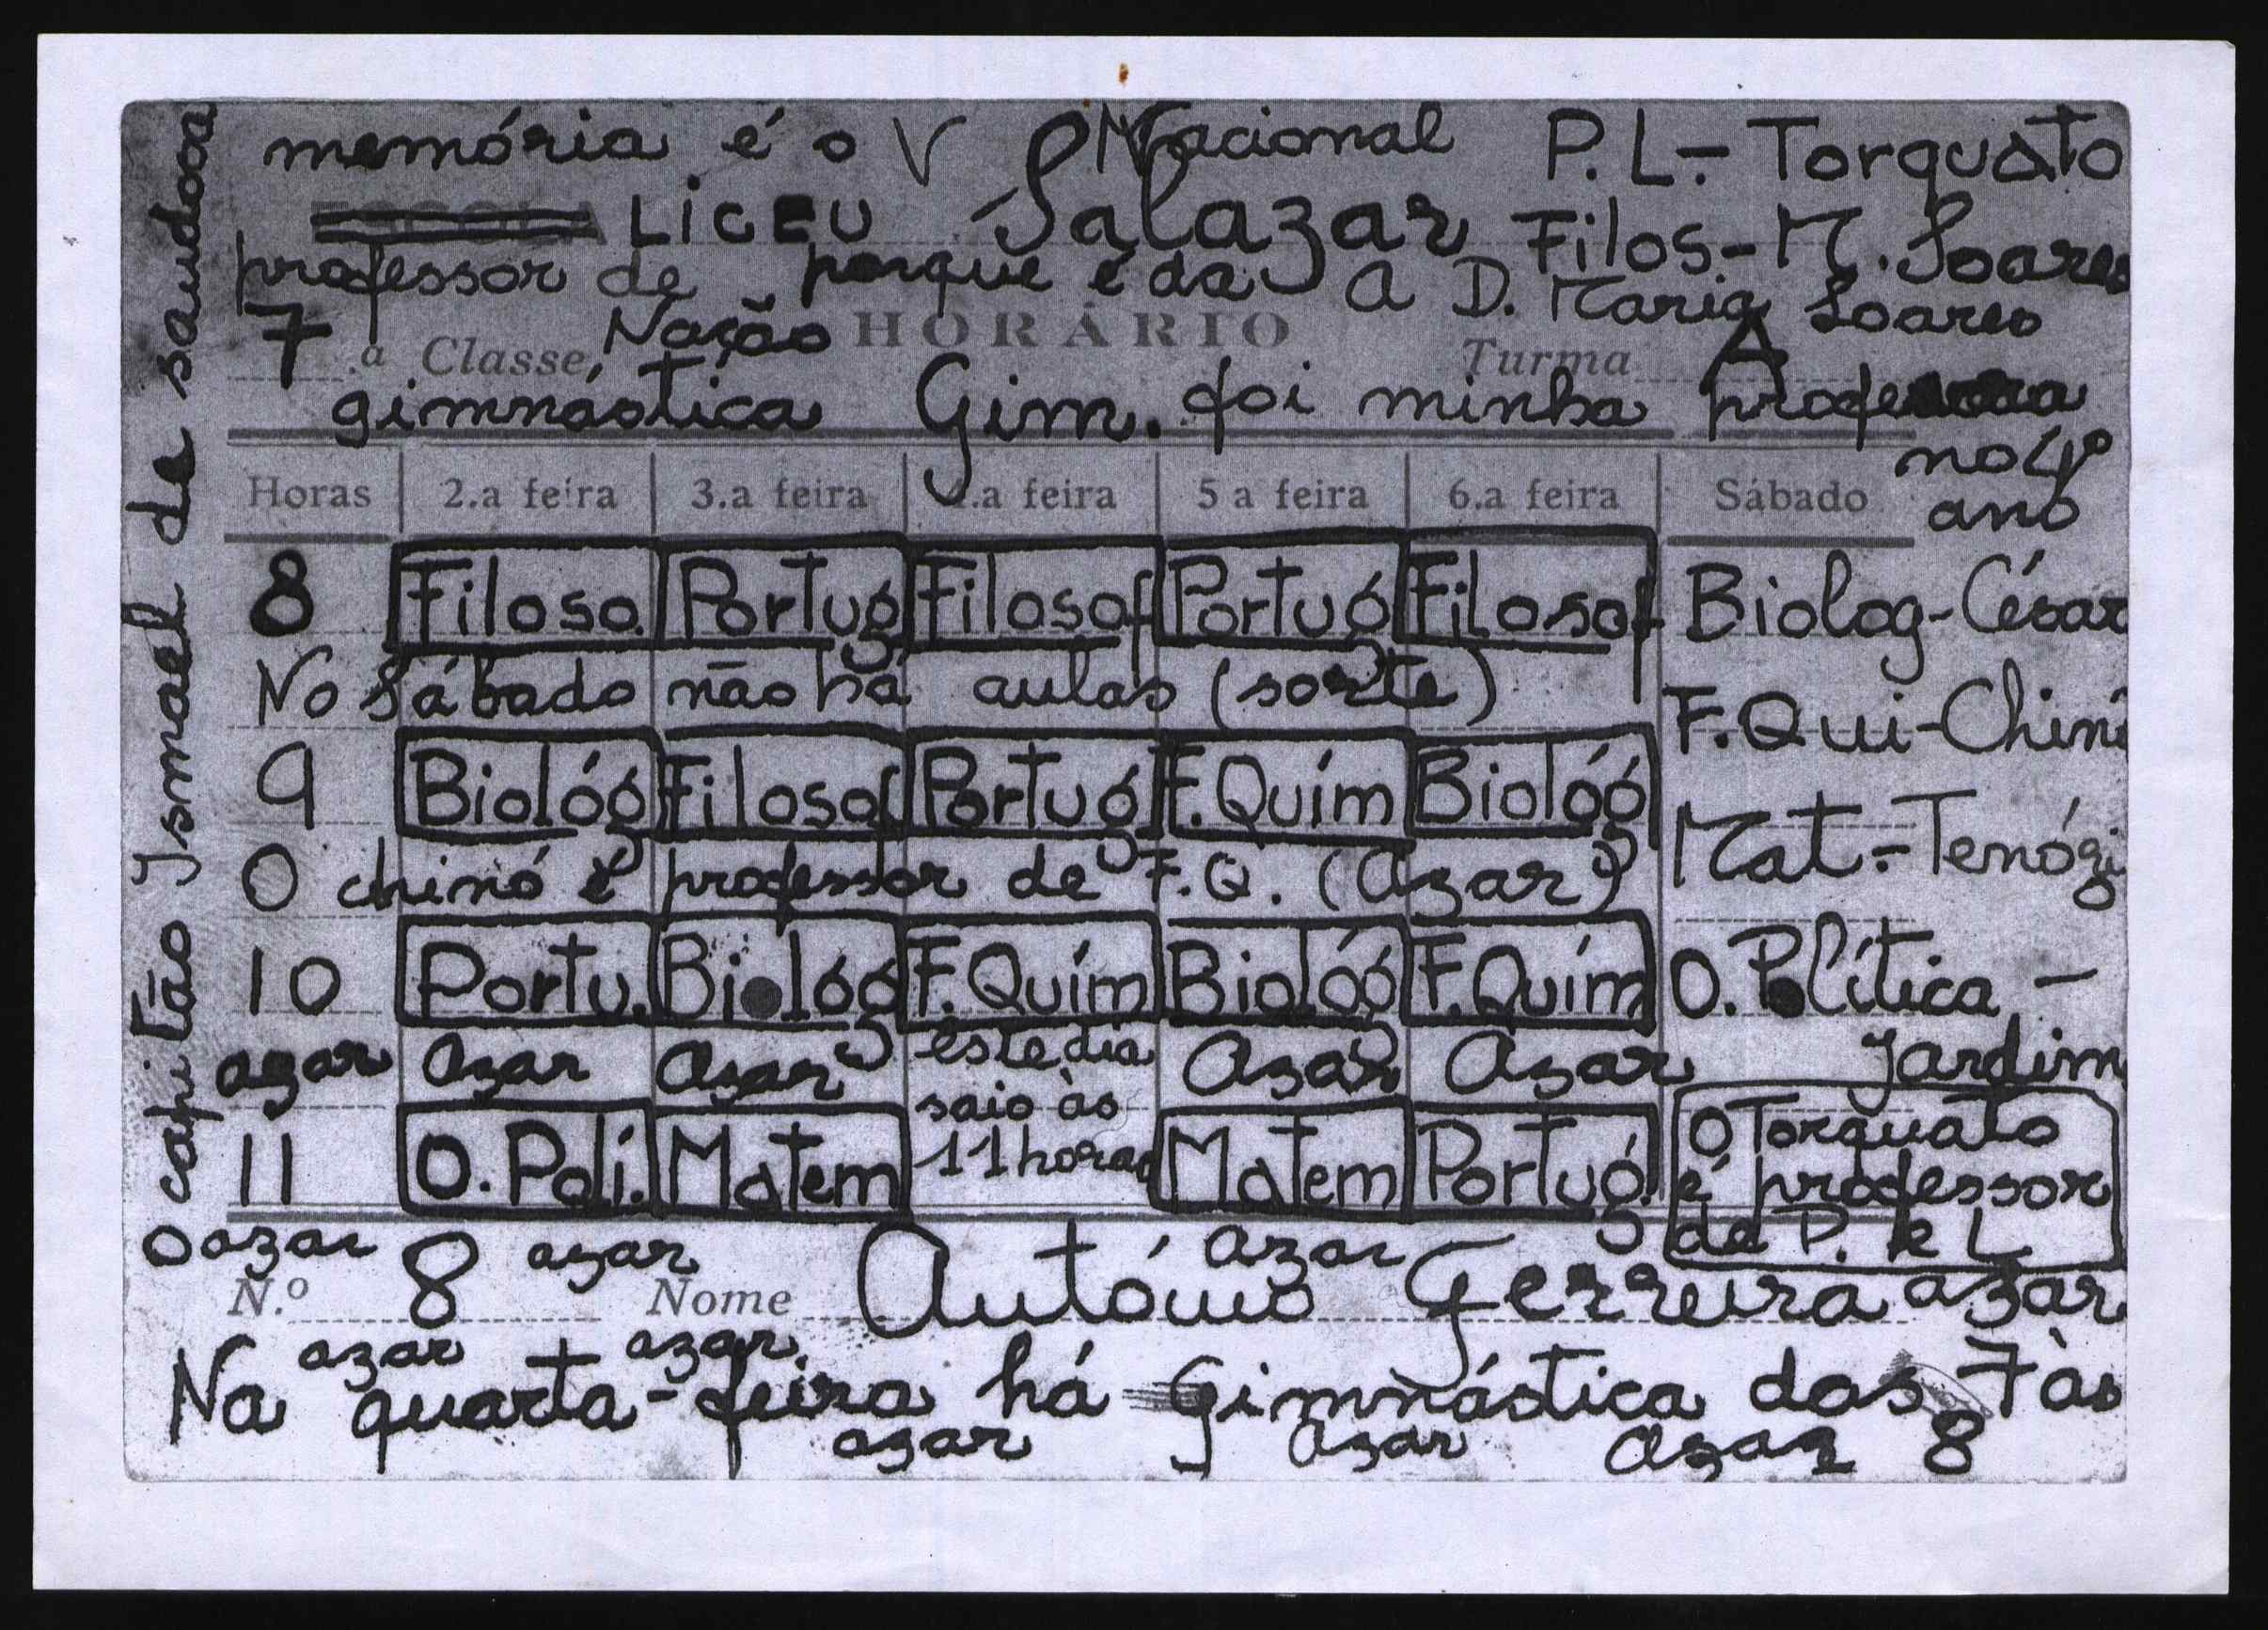 O capitão Ismael de saudosa
memória é o V Nacional P. L. - Torquato
LICEU Salazar Filos. - M. Soares
professor de porque é da A D. Maria Soares
7 .a Classe Nação HORÁRIO Turma A
gimnástica Gim. foi minha professora
no 4º
ano
Horas 2.a feira 3.a feira 4.a feira 5 a feira 6.a feira Sábado
8 Filoso. Portug Filosof Portug Filosof Biolog - César
No Sábado não há aulas (sorte)
F. Qui - Chinó
9 Biológ Filosof Portug F. Quím Biológ
Mat. - Tenógi
O chinó é professor de F. Q. (Azar)
10 Portu. Biológ F. Quím Biológ F. Quím O. Política -
Jardim
azar azar azar este dia azar Azar
saio às
11 horas
11 O. Poli. Matem Matem Portug.
O Torquato
é professor
de P. e L
azar azar azar
N.º 8 Nome António Ferreira azar
azar azar
Na quarta-feira há Gimnástica das 7 às
azar azar azar 8